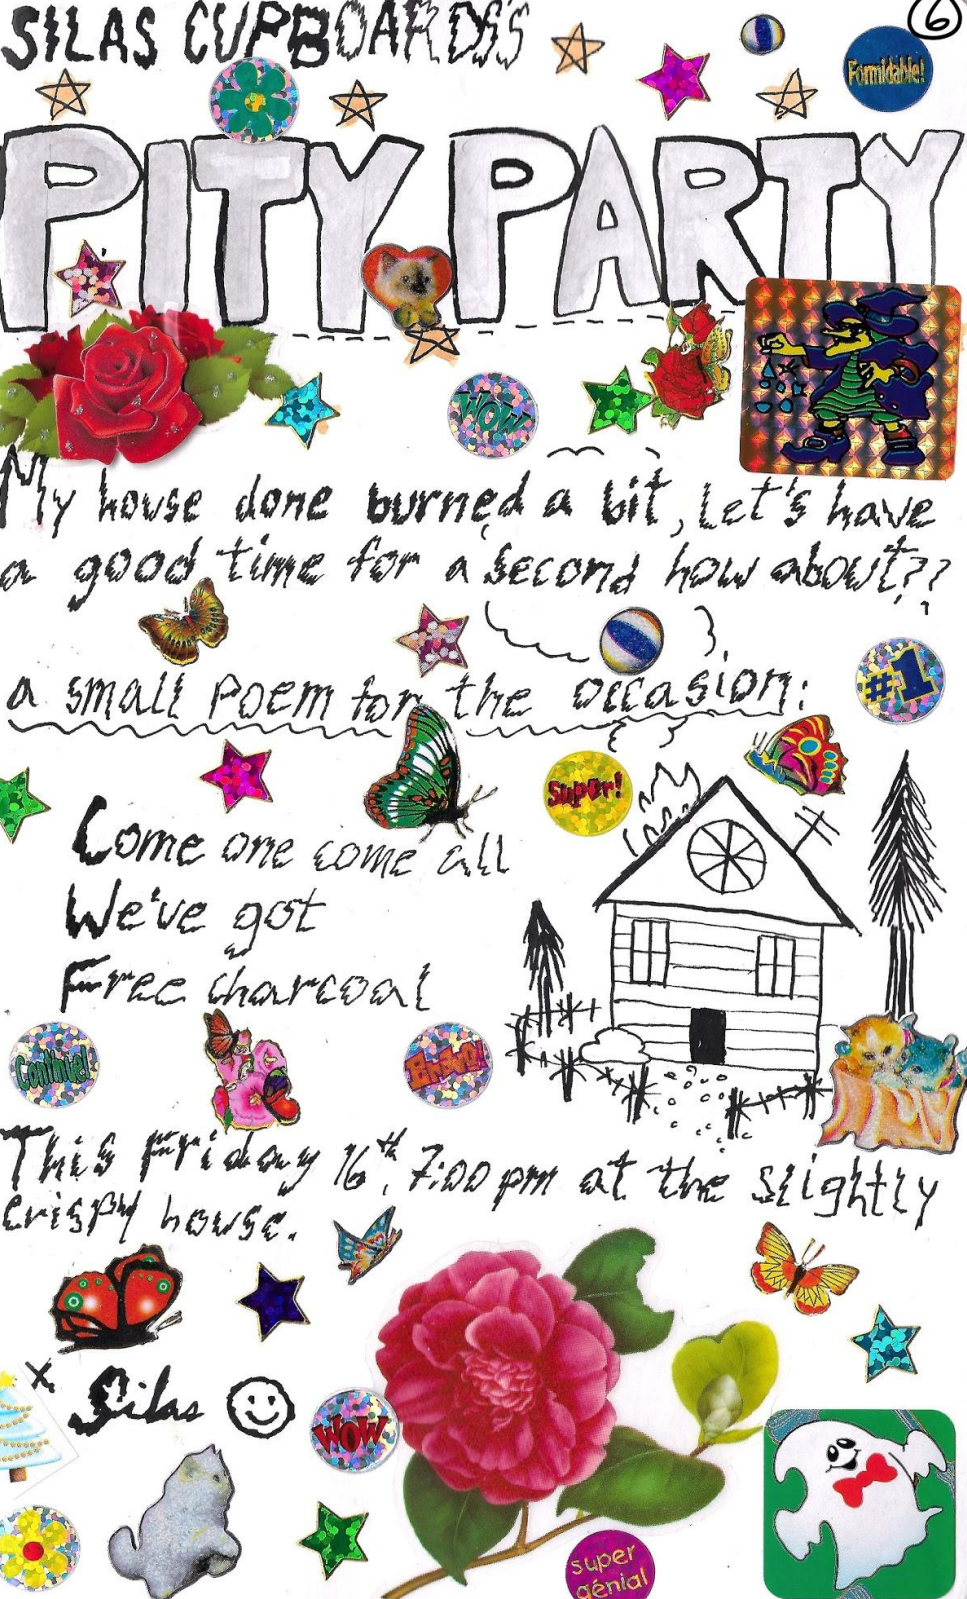 6
SILAS CUPBOARDS'S
Formidable!
PITY PARTY
WOW
My house done burned a bit, Let's have
a good time for a second how about??
#1
a small Poem for the occasion:
Super!
Come one come all
We've got
Free charcoal
Continue!
Bravo!
This Friday 16th, 7:00 pm at the slightly
crispy house.
x Silas
WOW
super
génial